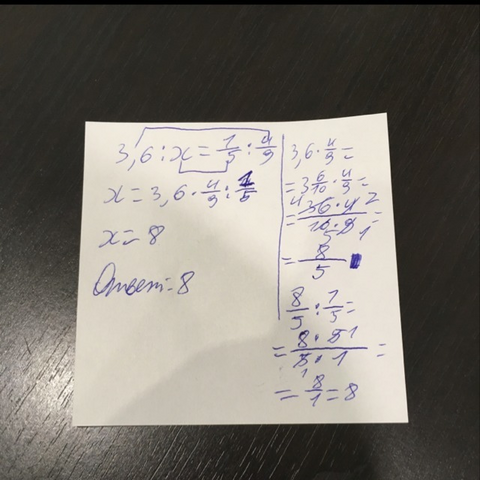 3,6 : x = 1/5 : 4/9
x = 3,6 · 4/9 : 1/5
x = 8
Ответ: 8
3,6 · 4/9 =
= 3 6/10 · 4/9 =
= 36 · 4 / 10 · 9 = 4 2 5 1
= 8/5
8/5 : 1/5 =
= 8 · 5 / 5 · 1 = 1 1
= 8/1 = 8